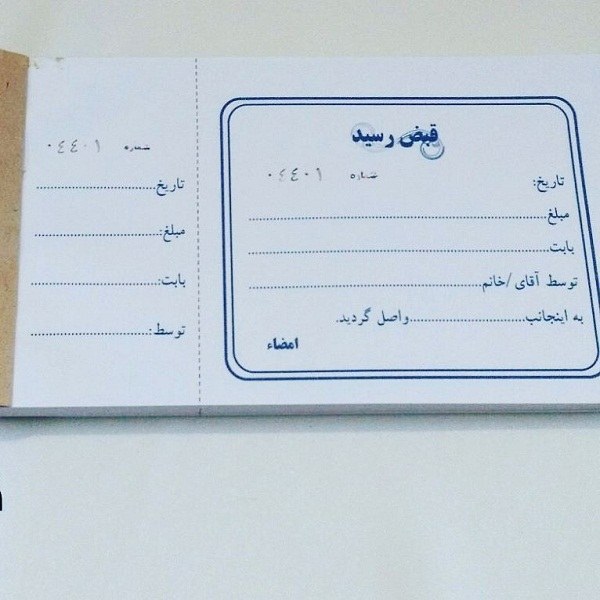 قبض رسید
شماره ۰٤٤۰۱
تاریخ:
مبلغ
بابت
توسط آقای /خانم
به اینجانب واصل گردید.
امضاء
شماره ۰٤٤۰۱
تاریخ
مبلغ:
بابت:
توسط: